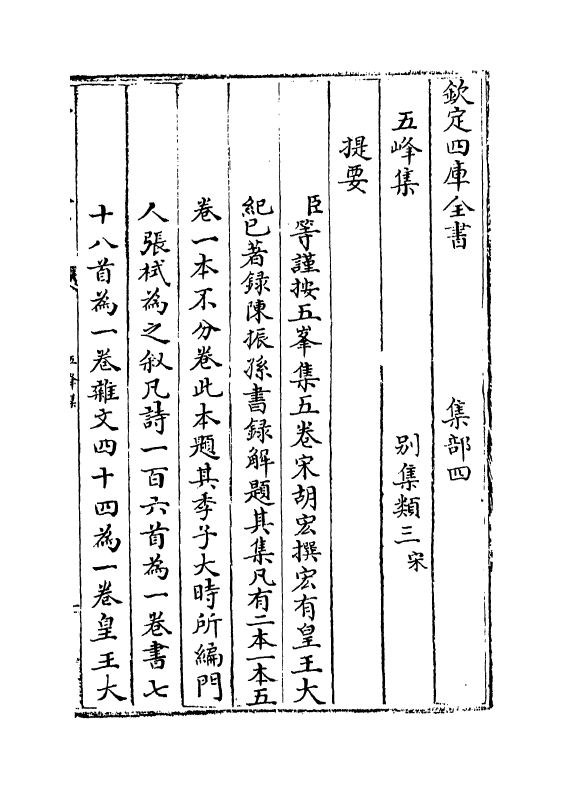 欽定四庫全書　　集部四
五峰集　　別集類三宋
提要
臣等謹按五峯集五卷宋胡宏撰宏有皇王大
紀已著録陳振孫書録解題其集凡有二本一本五
卷一本不分卷此本題其季子大時所編門
人張栻為之叙凡詩一百六首為一卷書七
十八首為一卷雜文四十四為一卷皇王大
五峰集